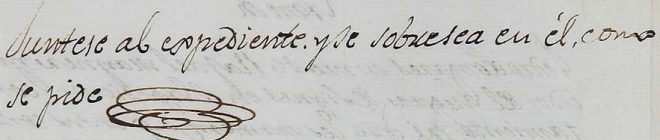 Juntese al expediente. y se sobresea en él, como
se pide